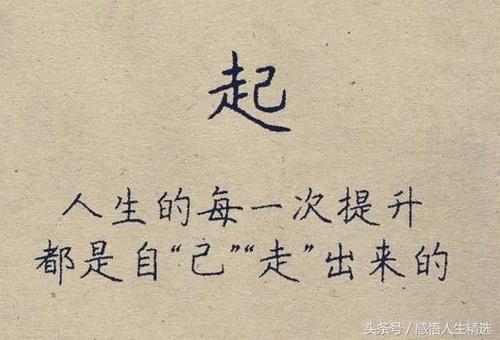 起
人生的每一次提升
都是自“己”“走”出来的
头条号/感悟人生精选